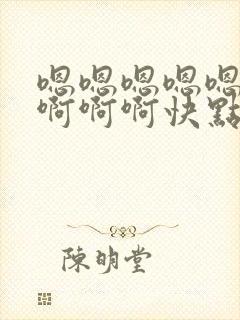 嗯嗯嗯嗯嗯
啊啊啊快點
陳明堂